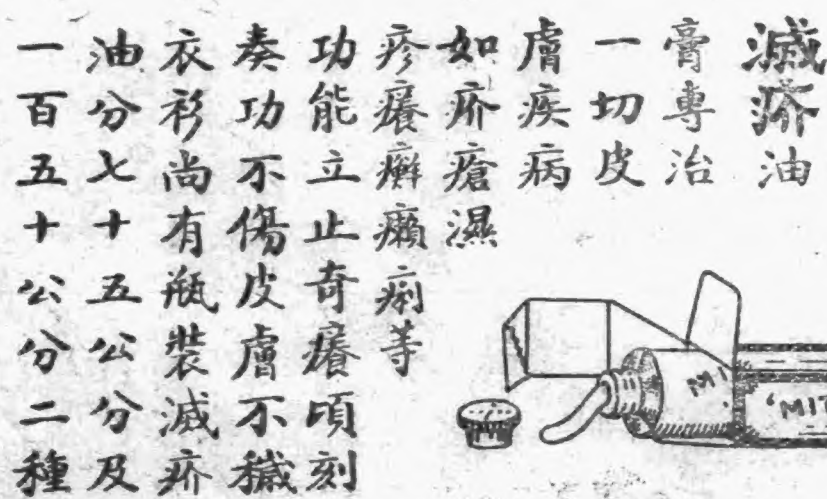 滅疥油
膏專治
一切皮
膚疾病
如疥瘡濕
疹癢癬癩痢等
功能立止奇癢頃刻
奏功不傷皮膚不穢
衣衫尚有瓶裝滅疥
油分七十五公分及
一百五十公分二種
MI
'MIT